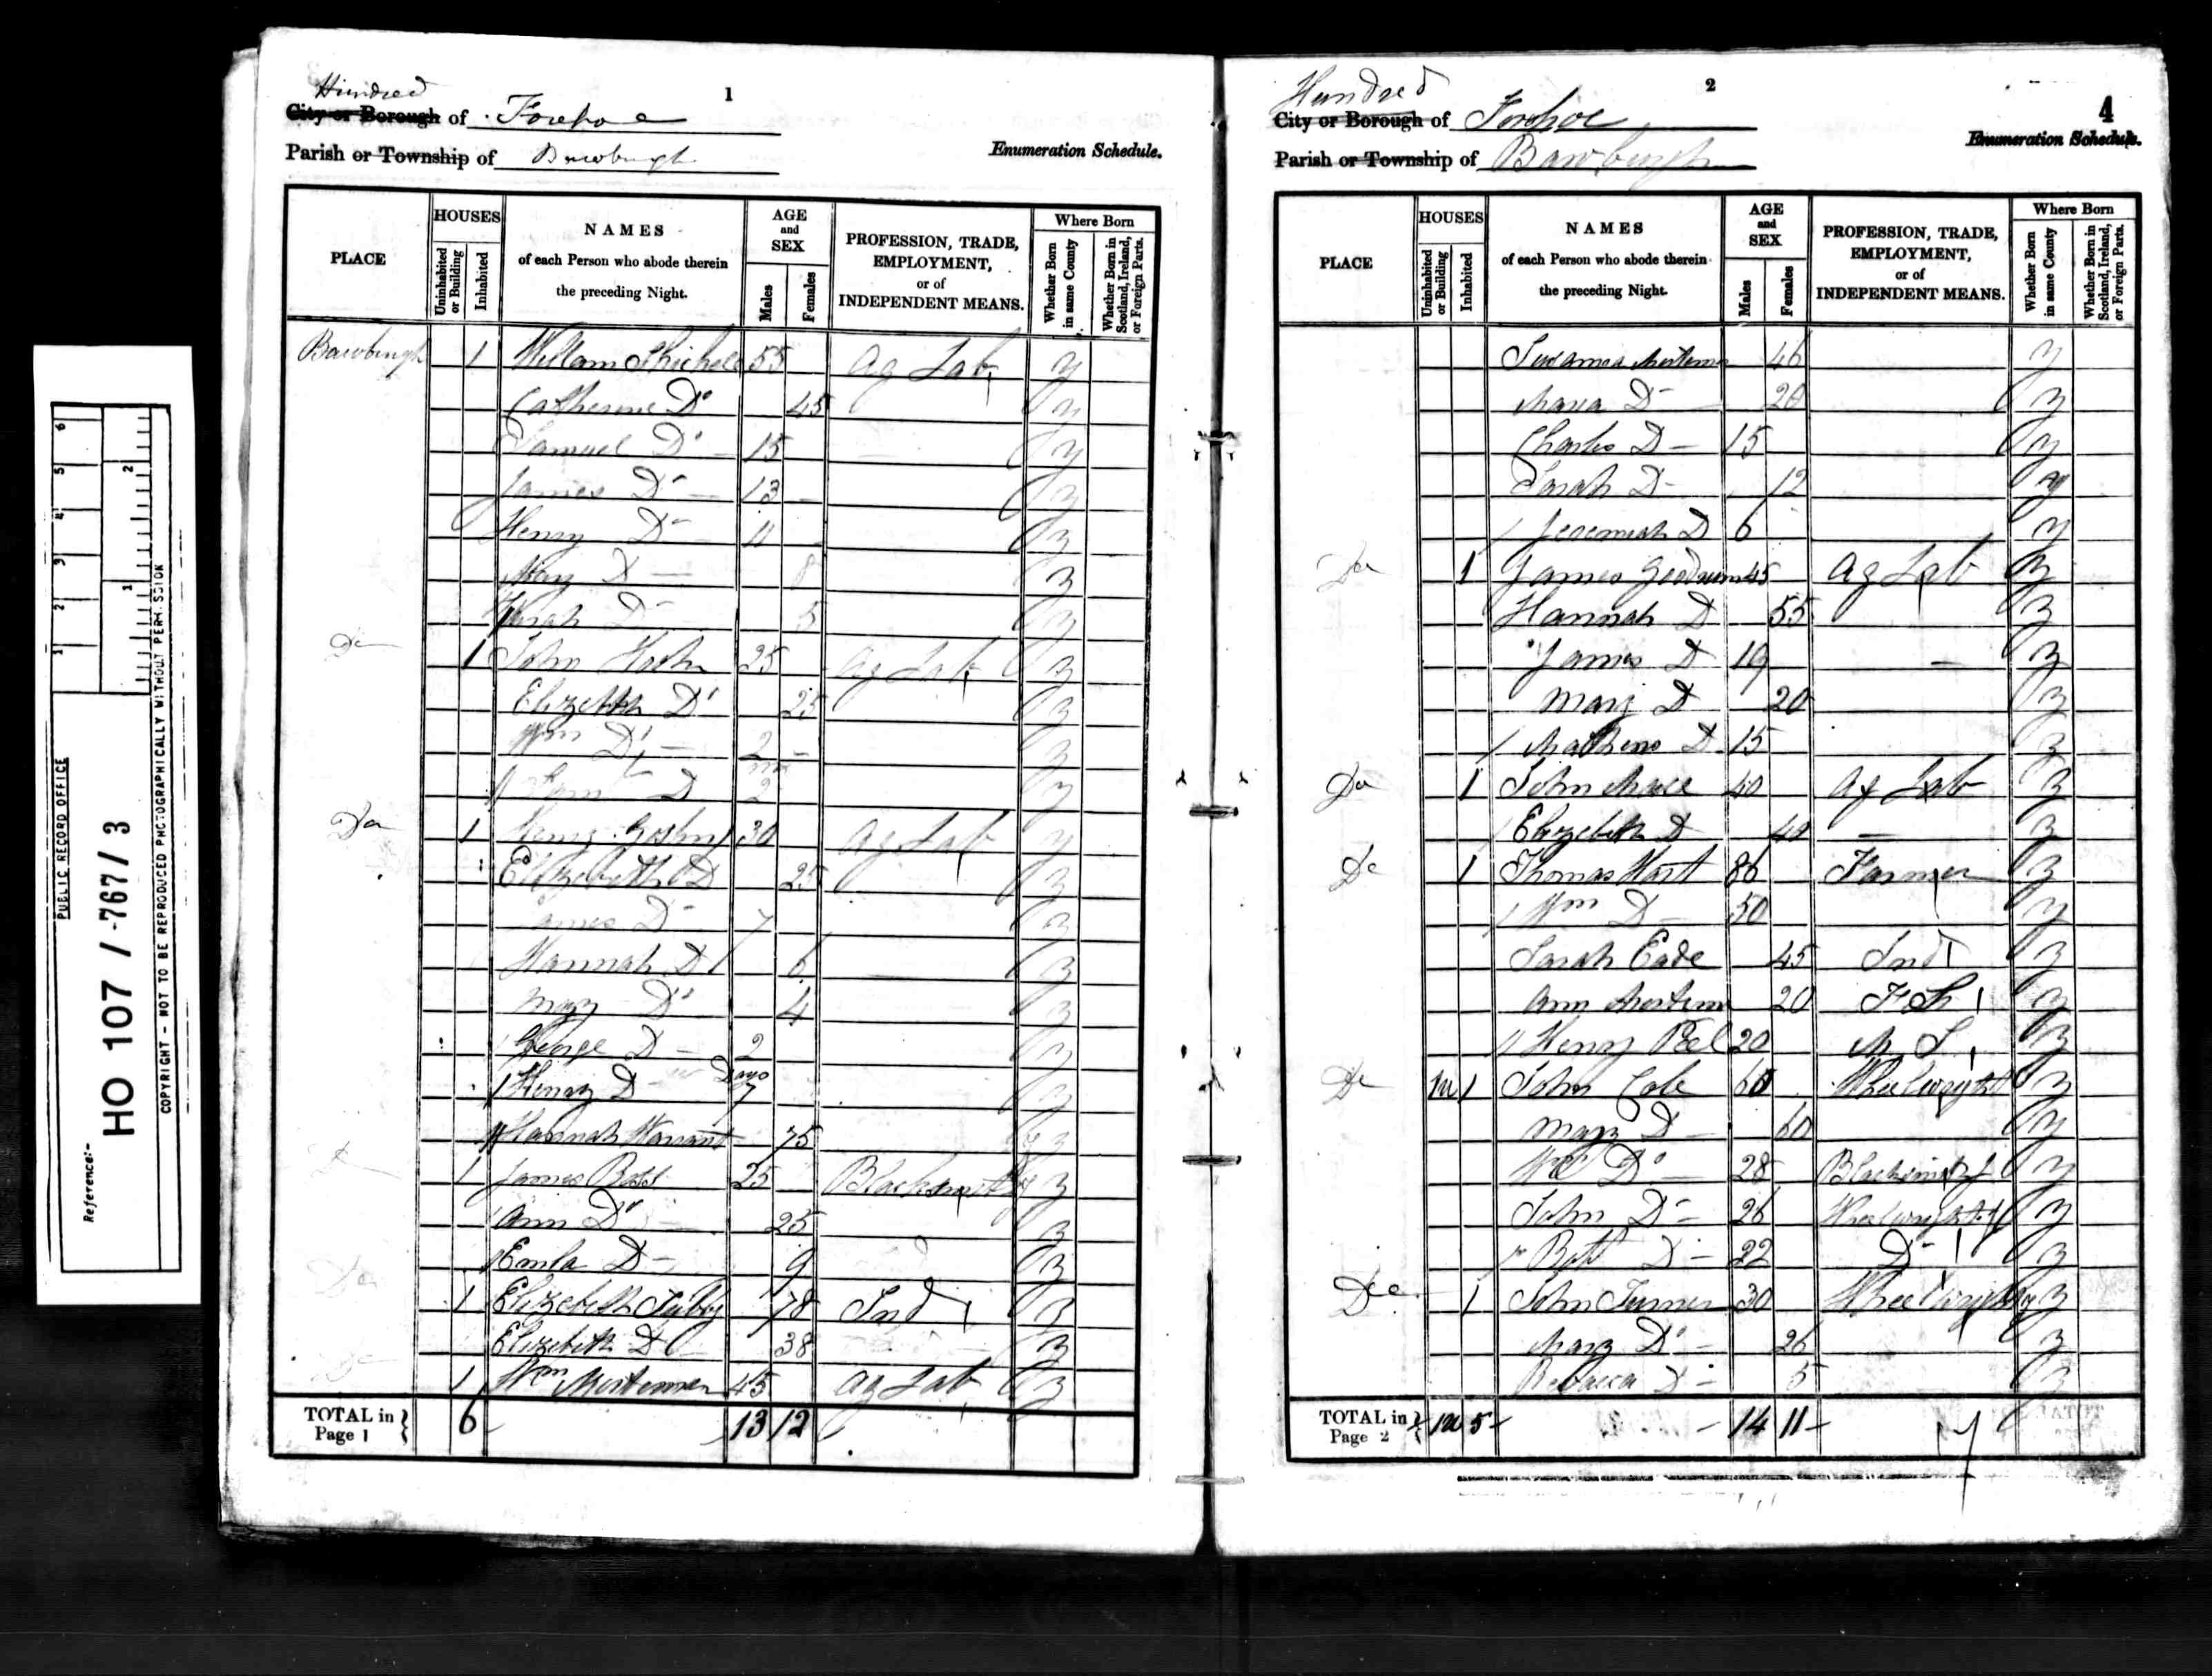 PUBLIC RECORD OFFICE
Reference:-
HO 107 / 767 / 3
COPYRIGHT - NOT TO BE REPRODUCED PHOTOGRAPHICALLY WITHOUT PERMISSION
1 2 3 4 5 6
1 2
1
Hundred
City or Borough of Forehoe
Parish or Township of Bawburgh
Enumeration Schedule.
PLACE
HOUSES
Uninhabited or Building
Inhabited
NAMES
of each Person who abode therein
the preceding Night.
AGE
and
SEX
Males
Females
PROFESSION, TRADE,
EMPLOYMENT,
or of
INDEPENDENT MEANS.
Where Born
Whether Born in same County
Whether Born in Scotland, Ireland, or Foreign Parts.
Bawburgh 1 William 55 Ag Lab y
Catherine Do 45 y
Samuel Do 15 y
James Do 13 y
Henry Do 11 y
Mary D 8 y
Sarah D 5 y
Do 1 John 25 Ag Lab y
Elizabth Do 25 y
Wm Do 2 y
D 2 y
Do 1 30 Ag Lab y
Elizabeth D 25 y
James D 7 y
Hannah D 6 y
Mary Do 4 y
George D 2 y
Henry D Days 7 y
Hannah Warrant 75 y
Do 1 James 25 Blacksmith y
Ann Do 25 y
D 9 y
Do 1 Elizabeth Tubby 78 Ind y
Elizabeth D 38 y
Do 1 Wm Mortimer 45 Ag Lab y
TOTAL in Page 1 6 13 12
2
4
Hundred
City or Borough of Forehoe
Parish or Township of Bawburgh
Enumeration Schedule.
PLACE
HOUSES
Uninhabited or Building
Inhabited
NAMES
of each Person who abode therein
the preceding Night.
AGE
and
SEX
Males
Females
PROFESSION, TRADE,
EMPLOYMENT,
or of
INDEPENDENT MEANS.
Where Born
Whether Born in same County
Whether Born in Scotland, Ireland, or Foreign Parts.
Susanna 46 y
Maria D 20 y
Charles D 15 y
Sarah D 12 y
Jeremiah D 6 y
Do 1 James Goodrum 45 Ag Lab y
Hannah D 55 y
James D 19 y
Mary D 20 y
D 15 y
Do 1 John 40 Ag Lab y
Elizabeth D 40 y
Do 1 Thomas Hart 86 Farmer y
Wm D 50 y
Sarah Eade 45 Ind y
Ann 20 F S y
Henry Peel 20 M S y
Do 1u 1 John Cole 60 Wheelwright y
Mary D 60 y
Wm Do 28 Blacksmith J y
John D 26 Wheelwright J y
Robt D 22 D y
Do 1 John Turner 30 Wheelwright y
Mary Do 26 y
Rebecca D 5 y
TOTAL in Page 2 1u 5 14 11